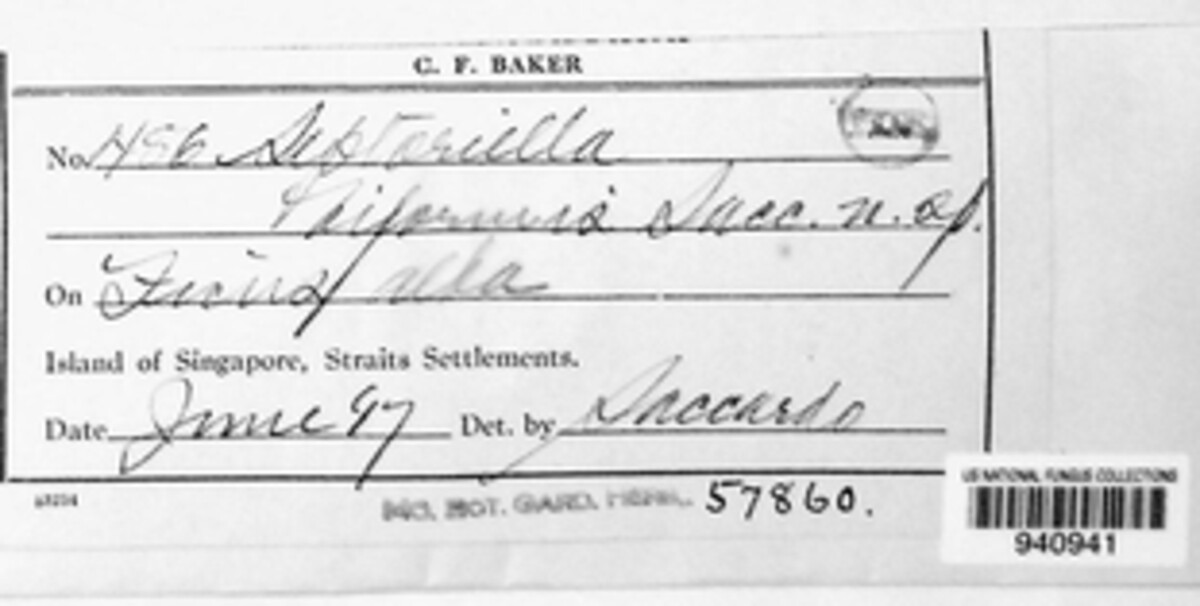 C. F. BAKER
No. 486 Septoriella
Sacc. n. sp.
On Ficus alba
Island of Singapore, Straits Settlements.
Date June 97 Det. by Saccardo
MO. BOT. GARD. HERB. 57860.
US NATIONAL FUNGUS COLLECTIONS
940941